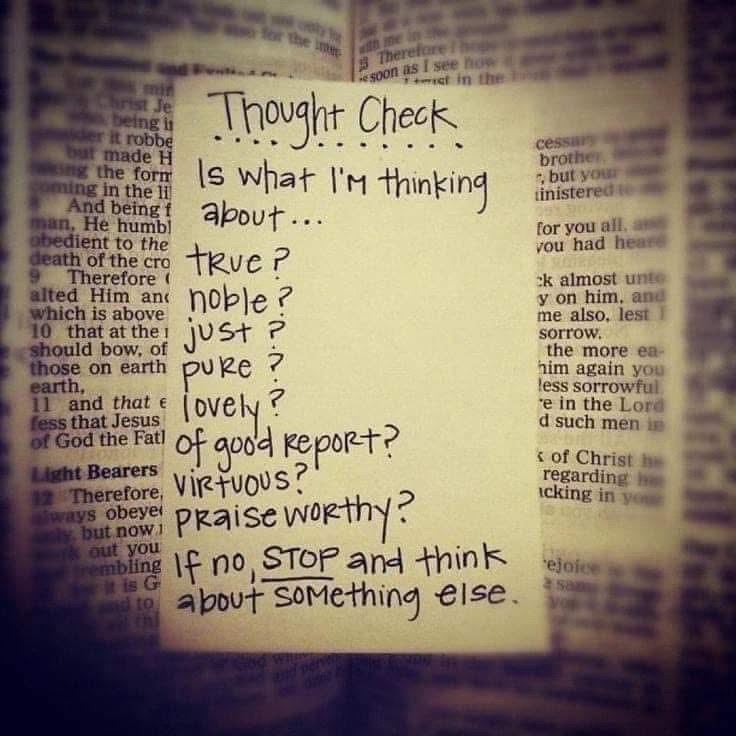 13 Therefore I hope
soon as I see how
in the
Thought Check
Is what I'm thinking
about...
true?
noble?
just?
pure?
lovely?
of good report?
virtuous?
praise worthy?
If no, STOP and think
about something else.
Christ Je
being i
it robbe
but made H
the form
coming in the li
And being f
man, He humbl
obedient to the
death of the cro
9 Therefore
alted Him and
which is above
10 that at the
should bow, of
those on earth
earth,
11 and that e
fess that Jesus
of God the Fat
Light Bearers
12 Therefore,
ways obeye
but now
out you
embling
it is G
cessary
brother,
, but your
inistered to
for you all,
you had heard
ck almost unto
y on him, and
me also, lest I
sorrow.
the more ea-
him again you
less sorrowful
e in the Lord
d such men in
k of Christ he
regarding his
cking in your
rejoice